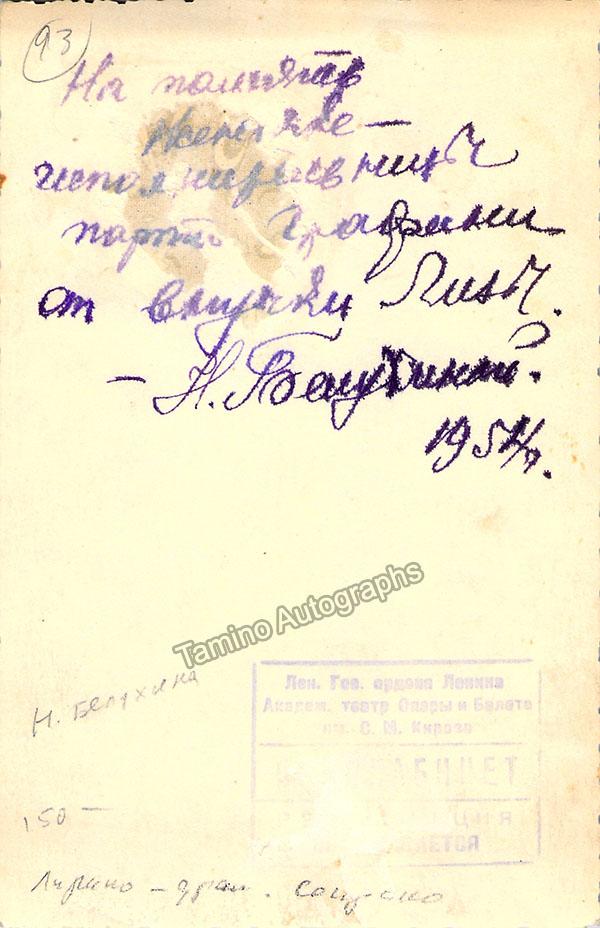 93
На память
Женичке —
исполнительницы
партии Графини
от внучки Лизы.
— Н.
195
Tamino Autographs
Н. Белухина
Лен. Гос. ордена Ленина
Академ. театр Оперы и Балета
им. С. М. Кирова
КАБИНЕТ
150 —
Лирико – драм. сопрано